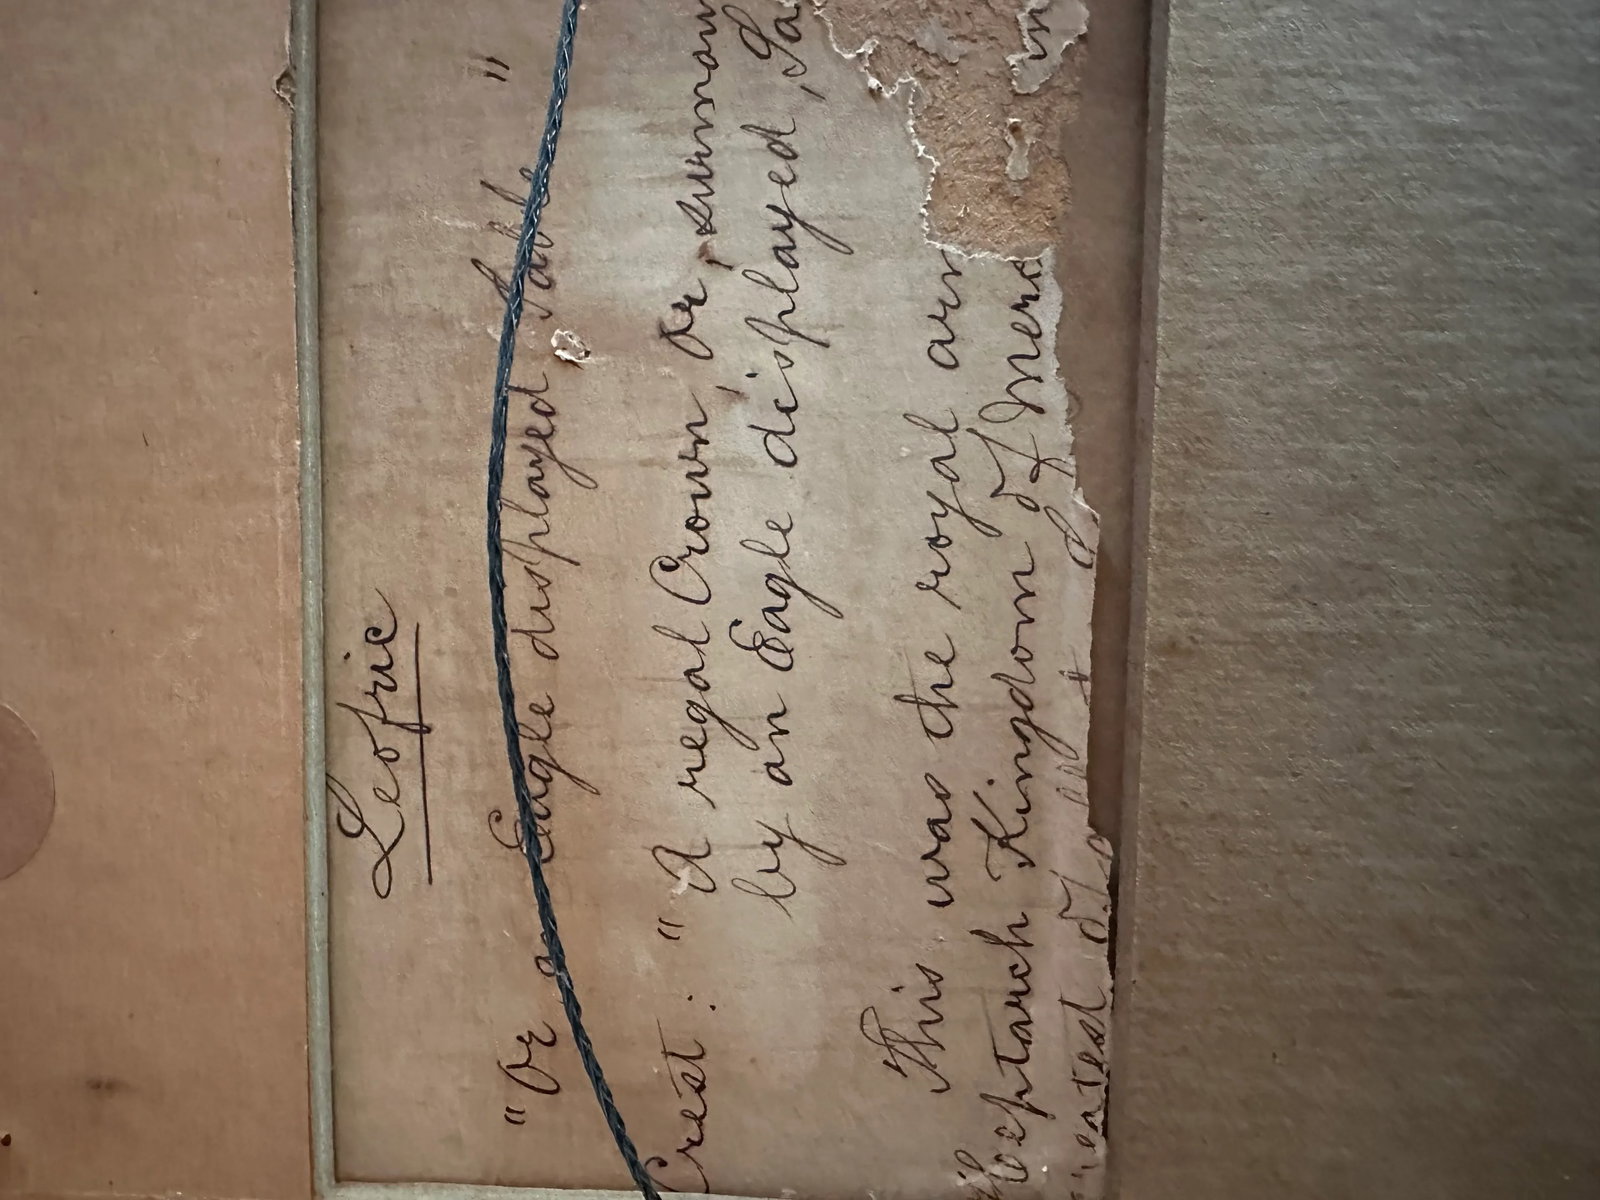 Leofric
"Or an Eagle displayed, Sable"
Crest: "A regal Crown, Or, surmoun
by an Eagle displayed, Sa
This was the royal arm
Heptarch Kingdom of Merc in